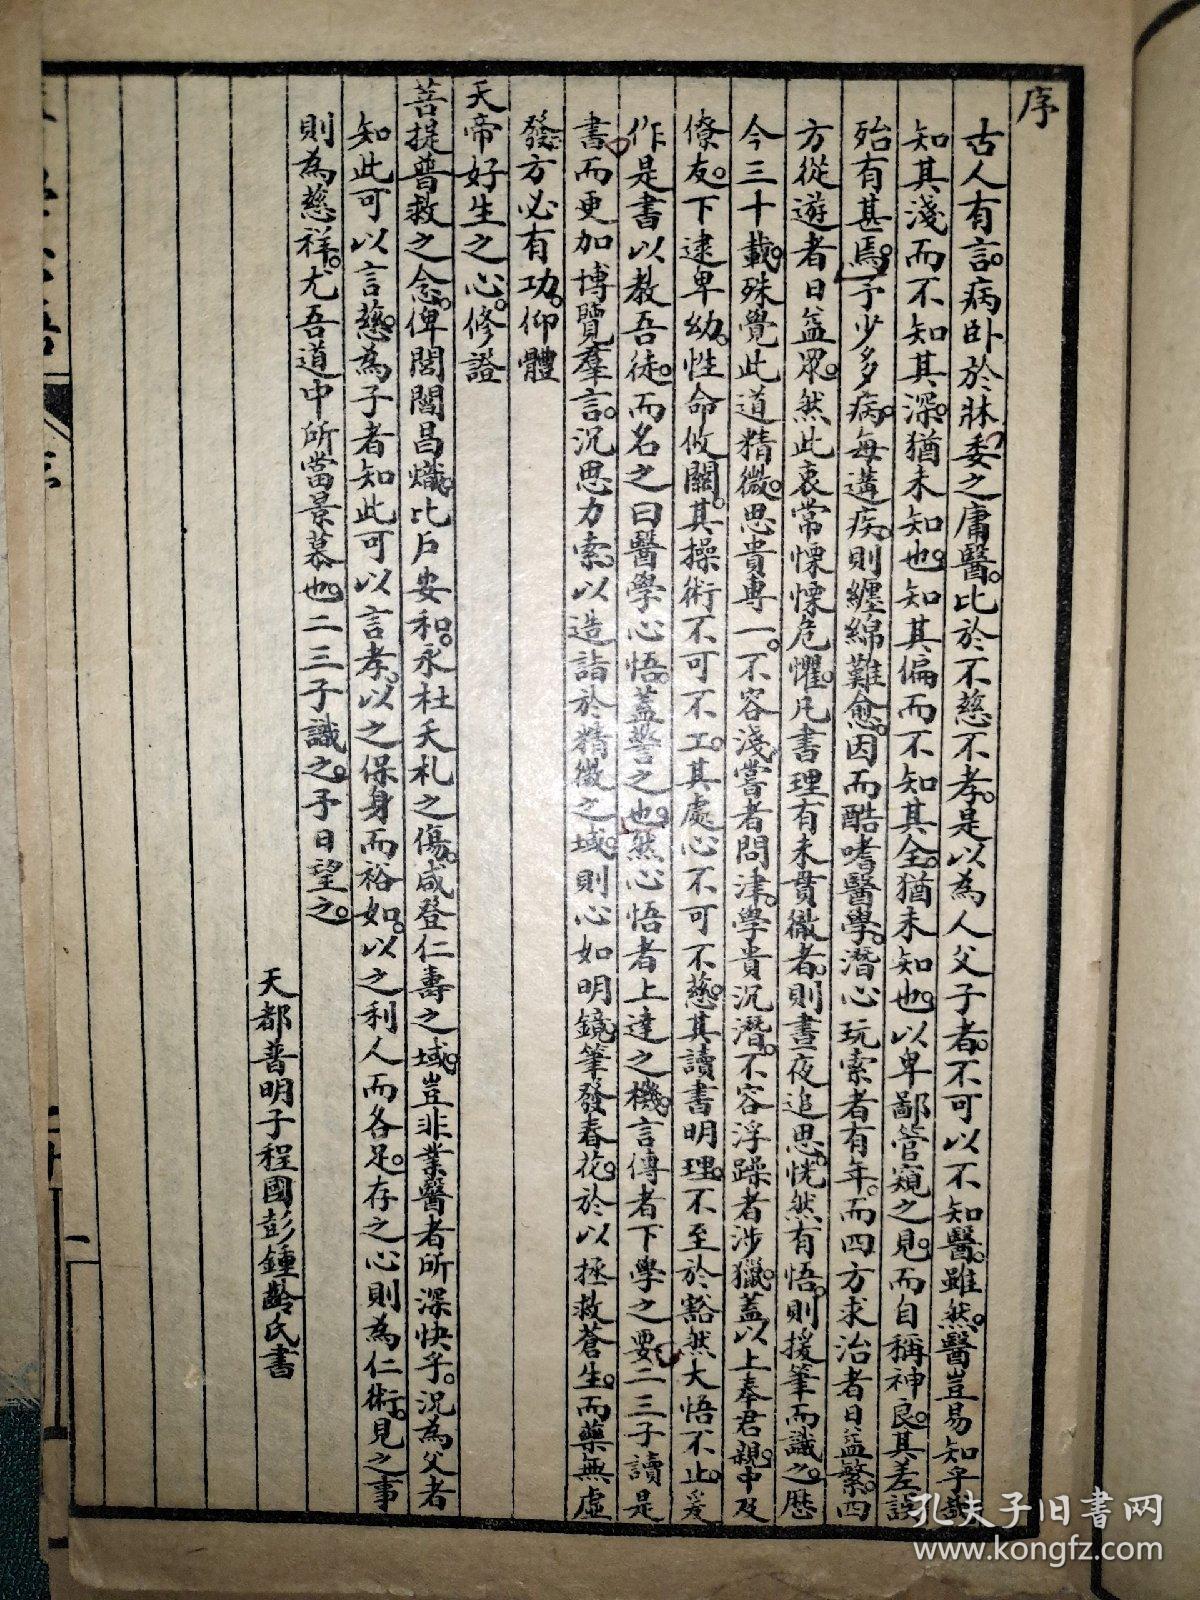 序
古人有言。病臥於牀。委之庸醫。比於不慈不孝。是以為人父子者。不可以不知醫。雖然。醫豈易知乎哉
知其淺而不知其深。猶未知也。知其偏而不知其全。猶未知也。以卑鄙管窺之見。而自稱神良。其差誤
殆有甚焉。予少多病。每遘疾。則纏綿難愈。因而酷嗜醫學。潛心玩索者有年。而四方求治者日益繁。四
方從遊者日益眾。然此衷常慄慄危懼。凡書理有未貫徹者。則晝夜追思。恍然有悟。則援筆而識之。歷
今三十載。殊覺此道精微。思貴專一。不容淺嘗者問津。學貴沉潛。不容浮躁者涉獵。蓋以上奉君親。中及
僚友。下逮卑幼。性命攸關。其操術不可不工。其處心不可不慈。其讀書明理。不至於豁然大悟不止。爰
作是書以教吾徒。而名之曰醫學心悟。蓋警之也。然心悟者上達之機。言傳者下學之要。二三子讀是
書而更加博覽羣言。沉思力索。以造詣於精微之域。則心如明鏡。筆發春花。於以拯救蒼生。而藥無虛
發。方必有功。仰體
天帝好生之心。修證
菩提普救之念。俾閭閻昌熾。比戶安和。永杜夭札之傷。咸登仁壽之域。豈非業醫者所深快乎。況為父者
知此可以言慈。為子者知此可以言孝。以之保身而裕如。以之利人而各足。存之心則為仁術。見之事
則為慈祥。尤吾道中所當景慕也。二三子識之。予日望之。
天都普明子程國彭鍾齡氏書
一
孔夫子旧書网
www.kongfz.com